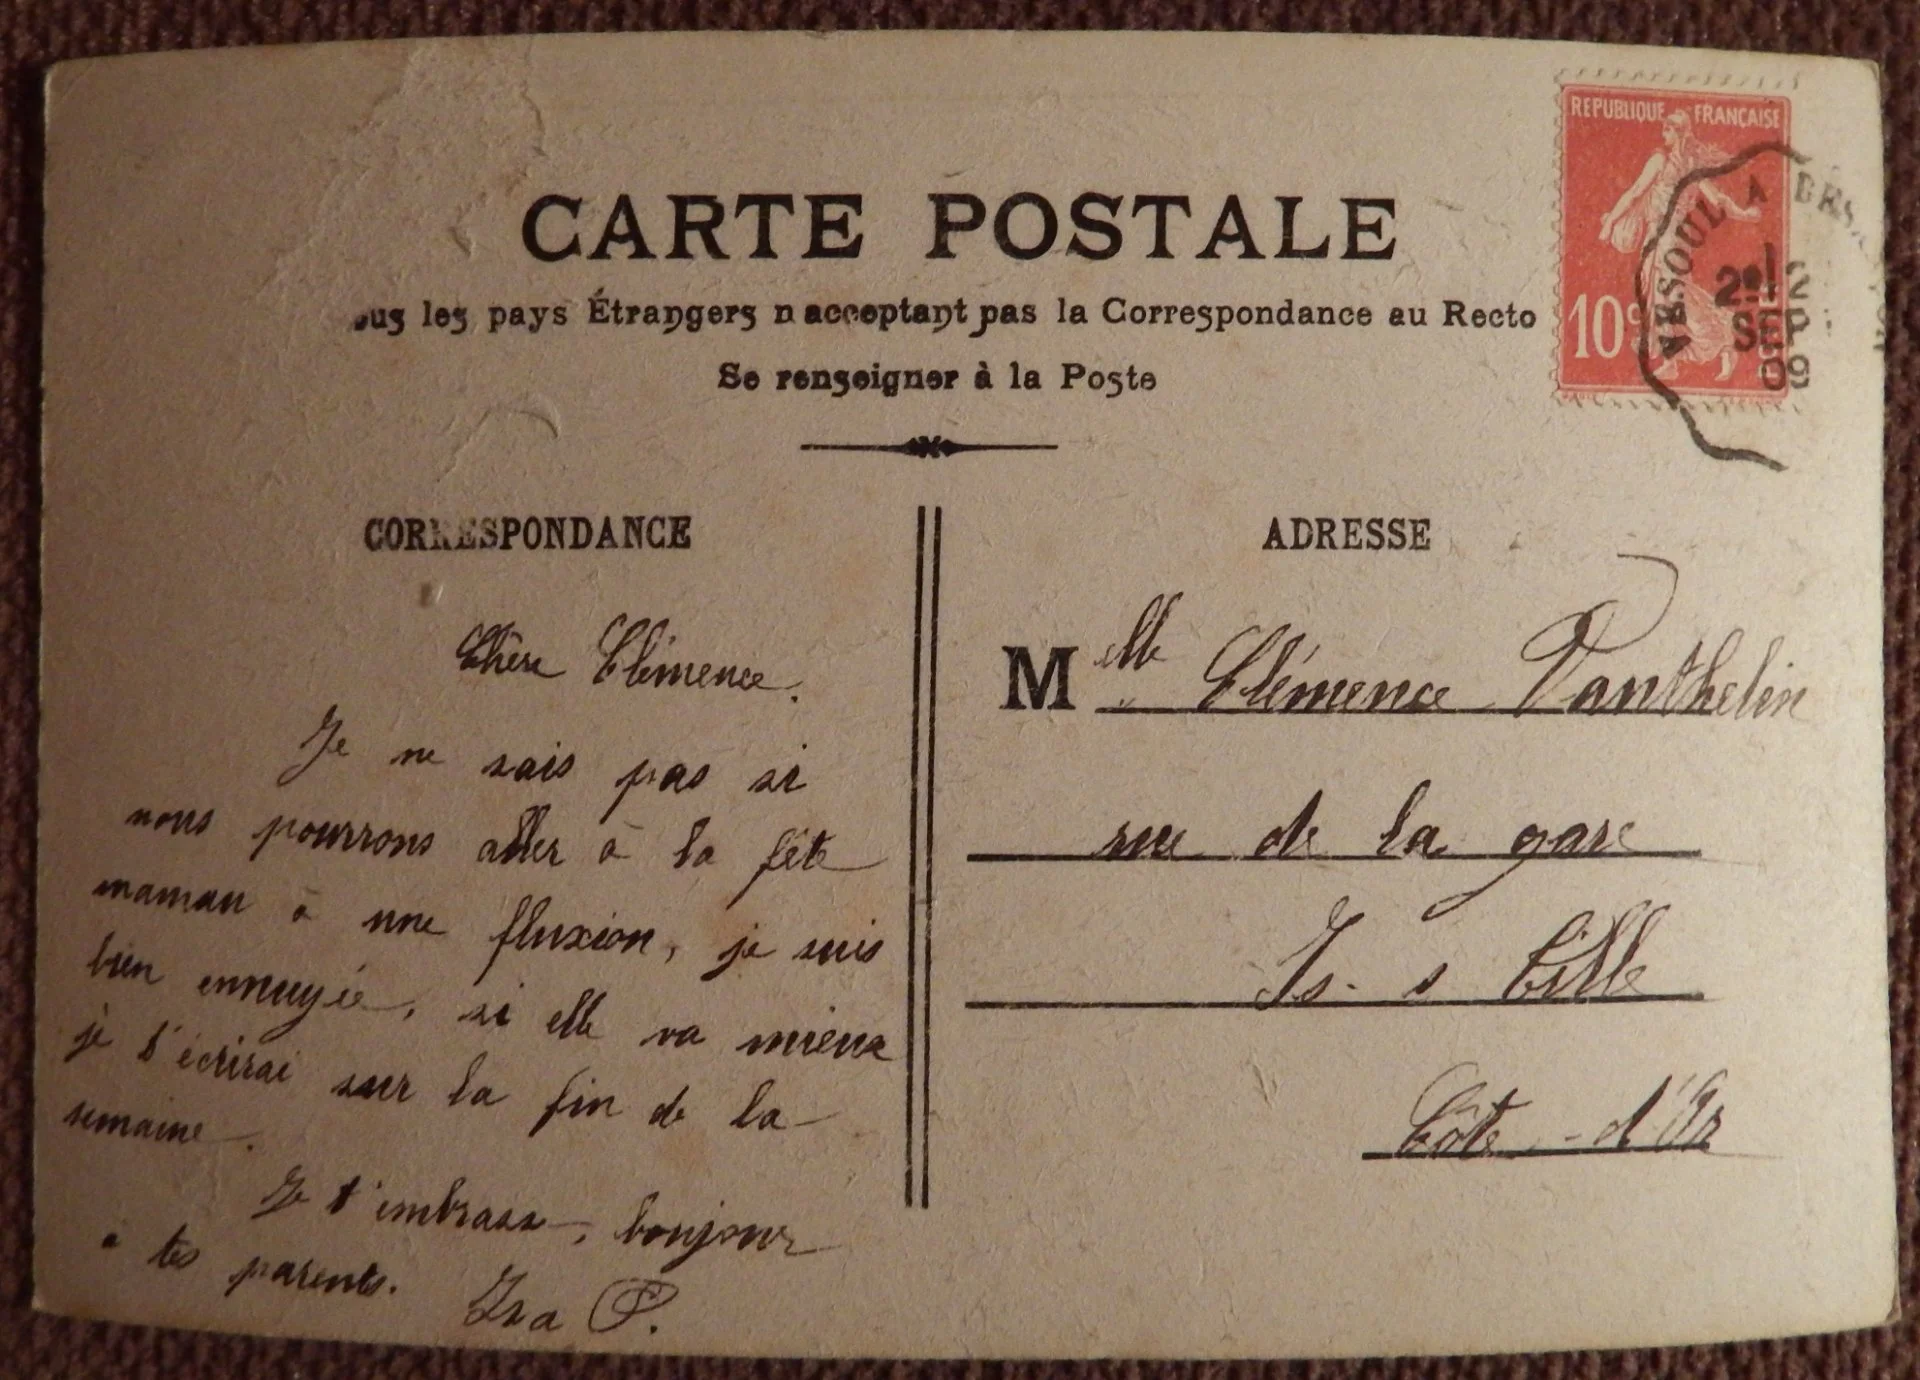 CARTE POSTALE
ous les pays Étrangers n acceptant pas la Correspondance au Recto
Se renseigner à la Poste
REPUBLIQUE FRANÇAISE
10c
VESOUL A BES
2
SEP
09
CORRESPONDANCE
Chère Clémence.
Je ne sais pas si
nous pourrons aller à la fête
maman à une fluxion, je suis
bien ennuyée, si elle va mieux
je t'écrirai sur la fin de la
semaine.
Je t'embrasse, bonjour
à tes parents.
Iza P.
ADRESSE
Melle Clémence Panthelin
rue de la gare
Is. s Tille
Côte-d'Or